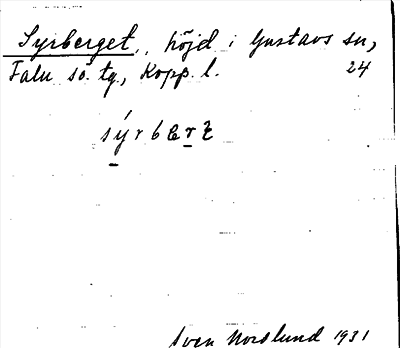 Syrberget, höjd i Gustavs sn,
Falu sö. tg., Kopp. l. 24
Sven Norslund 1931